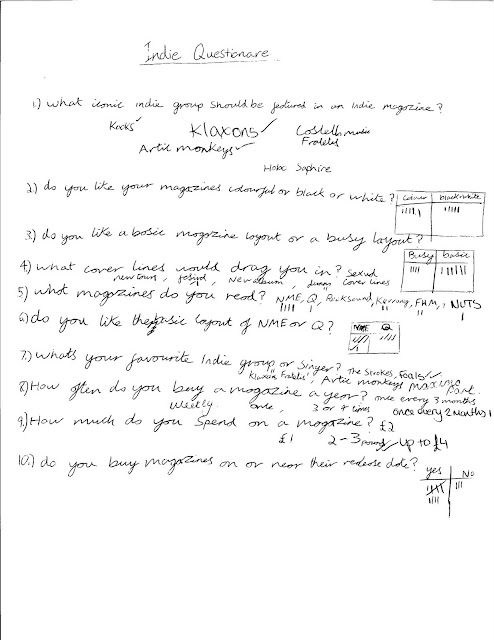 Indie Questionare
1.) what iconic indie group should be featured in an Indie magazine?
Kooks ✓ Klaxons ✓
Artic monkeys ✓ Fratellis
2.) do you like your magazines colourful or black or white?
Colour black/white
3.) do you like a basic magazine layout or a busy layout?
Busy basic
4.) what cover lines would drag you in? Sexual
new tours, gossip, New album, cover lines
5.) what magazines do you read? NME, Q, Rocksound, Kerrang, FHM, NUTS
6.) do you like the basic layout of NME or Q?
NME Q
7.) what's your favourite Indie group or Singer? The Strokes, Foals ✓
Klaxons, Artic monkeys
8.) How often do you buy a magazine a year? once every 3 months
weekly once, 3 or 4 times once every 2 months
9.) How much do you spend on a magazine? £2
£1 2-3 pounds up to £4
10.) do you buy magazines on or near their release date?
yes No